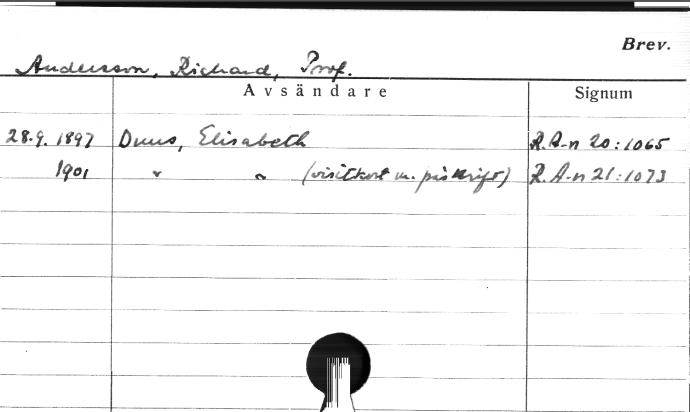 Brev.
Andersson, Richard, Prof.
Avsändare Signum
28.9. 1897 Duus, Elisabeth R. A-n 20:1065
1901 " " (visitkort m. påskrift) R. A-n 21:1073